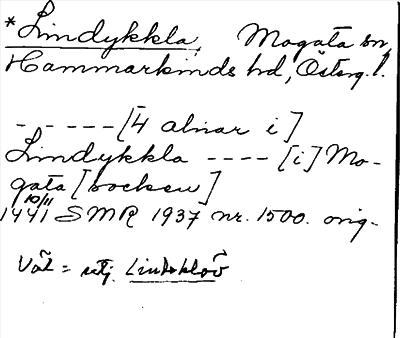 *Lindykkla, Mogata sn,
Hammarkinds hd, Österg. l.
- - - - - [4 alnar i]
Lindykkla - - - - [i] Mo-
gata [socken]
10/11
1441 SMR 1937 nr. 1500. orig-
Väl =